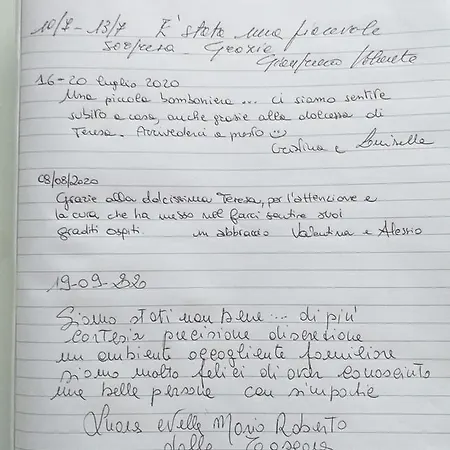 10/7 - 13/7 E' stata una piacevole
sorpresa. Grazie
Gianfranco
16-20 luglio 2020
Una piccola bomboniera ... ci siamo sentite
subito a casa, anche grazie alla dolcezza di
Teresa. Arrivederci a presto ☺
Cristina e
08/08/2020
Grazie alla dolcissima Teresa, per l'attenzione e
la cura che ha messo nel farci sentire suoi
graditi ospiti. un abbraccio Valentina e Alessio
19-09-20
Siamo stati non bene ... di più
cortesia precisione discrezione
un ambiente accogliente familiare
siamo molto felici di aver conosciuto
una bella persona con simpatia
Mario Roberto
dalla Toscana